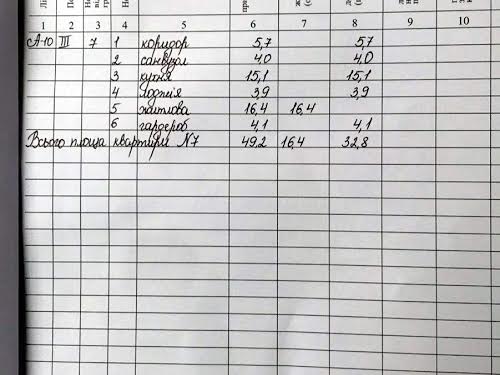 1 2 3 4 5 6 7 8 9 10
А-10 III 7 1 коридор 5,7 5,7
2 санвузол 4.0 4.0
3 кухня 15,1 15,1
4 лоджія 3,9 3,9
5 житлова 16,4 16,4
6 гардероб 4,1 4,1
Всього площа квартири N7 49.2 16,4 32,8